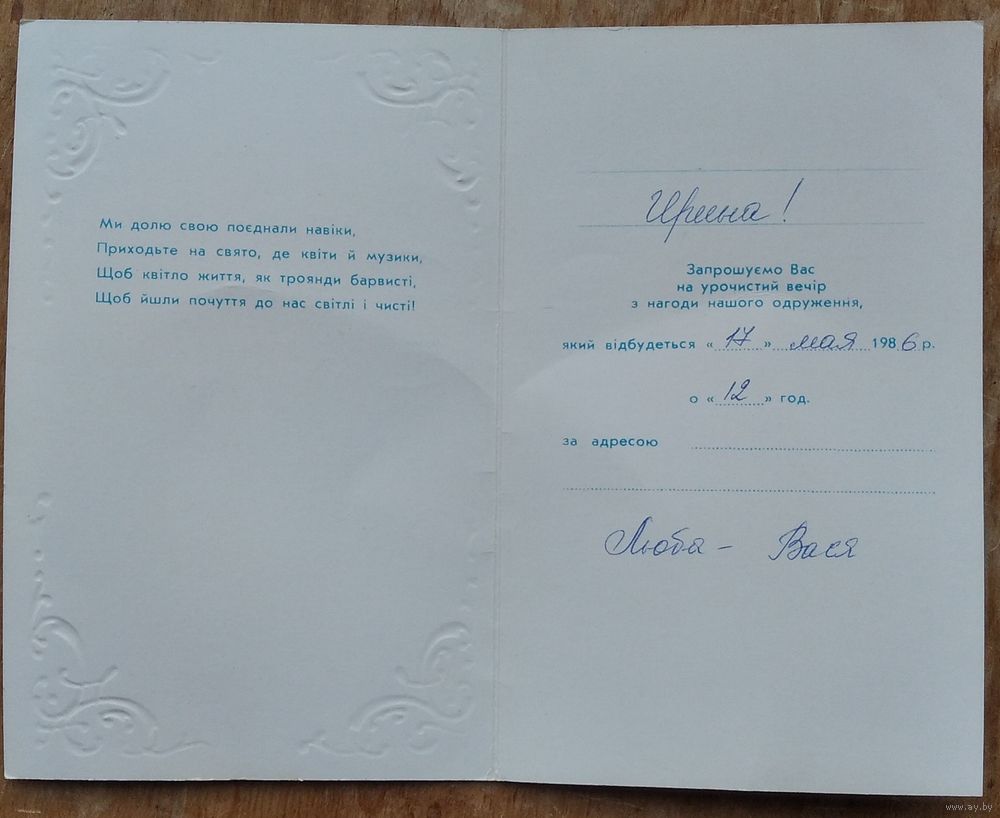 Ми долю свою поєднали навіки,
Приходьте на свято, де квіти й музики,
Щоб квітло життя, як троянди барвисті,
Щоб йшли почуття до нас світлі і чисті!
Ирина!
Запрошуємо Вас
на урочистий вечір
з нагоди нашого одруження,
який відбудеться «17» мая 1986 р.
о «12» год.
за адресою
Люба - Вася
www.ay.by